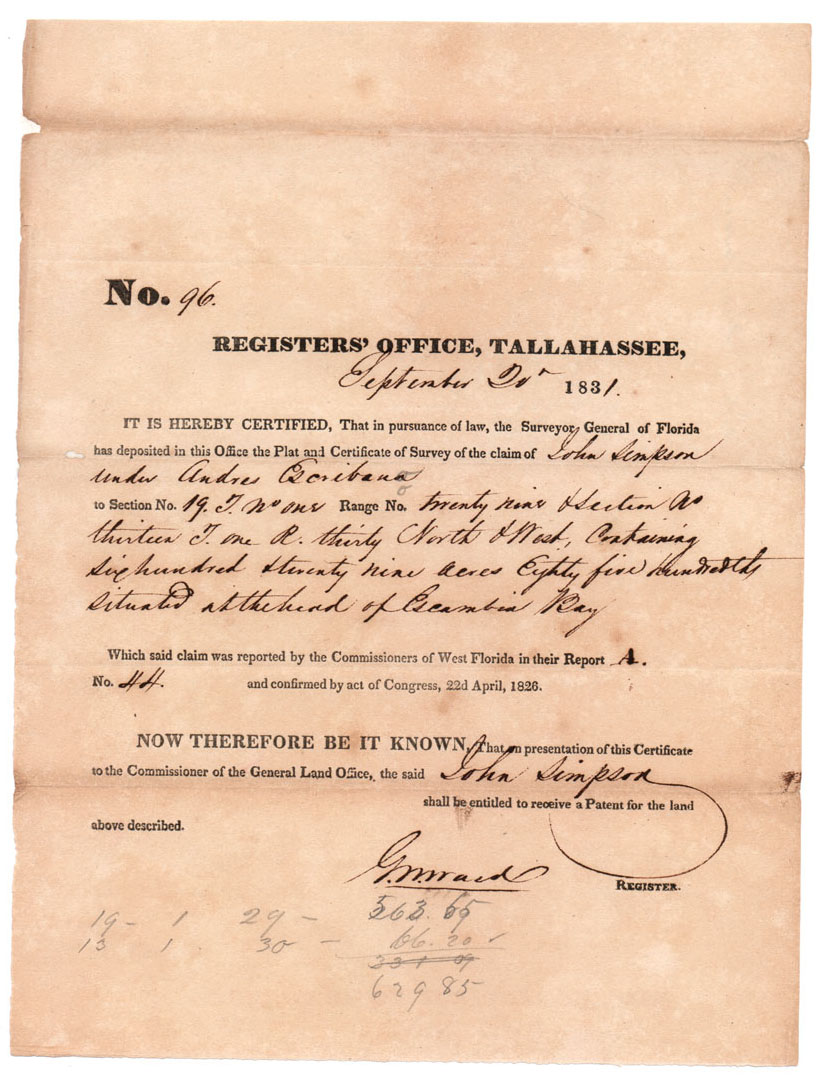 No. 96.
REGISTERS' OFFICE, TALLAHASSEE,
September 20 1831.
IT IS HEREBY CERTIFIED, That in pursuance of law, the Surveyor General of Florida
has deposited in this Office the Plat and Certificate of Survey of the claim of John Simpson
under Andres Escribano
to Section No. 19. T. No one Range No. twenty nine & Section No
thirteen T. one R. thirty North & West, Containing
Six hundred & twenty nine acres Eighty five hundredths
Situated at the head of Escambia Bay
Which said claim was reported by the Commissioners of West Florida in their Report A.
No. 44. and confirmed by act of Congress, 22d April, 1826.
NOW THEREFORE BE IT KNOWN, That on presentation of this Certificate
to the Commissioner of the General Land Office, the said John Simpson
shall be entitled to receive a Patent for the land
above described.
G. W. Ward
REGISTER.
19 - 1 29 - 563.65
13 1 30 - 66.20
629 85